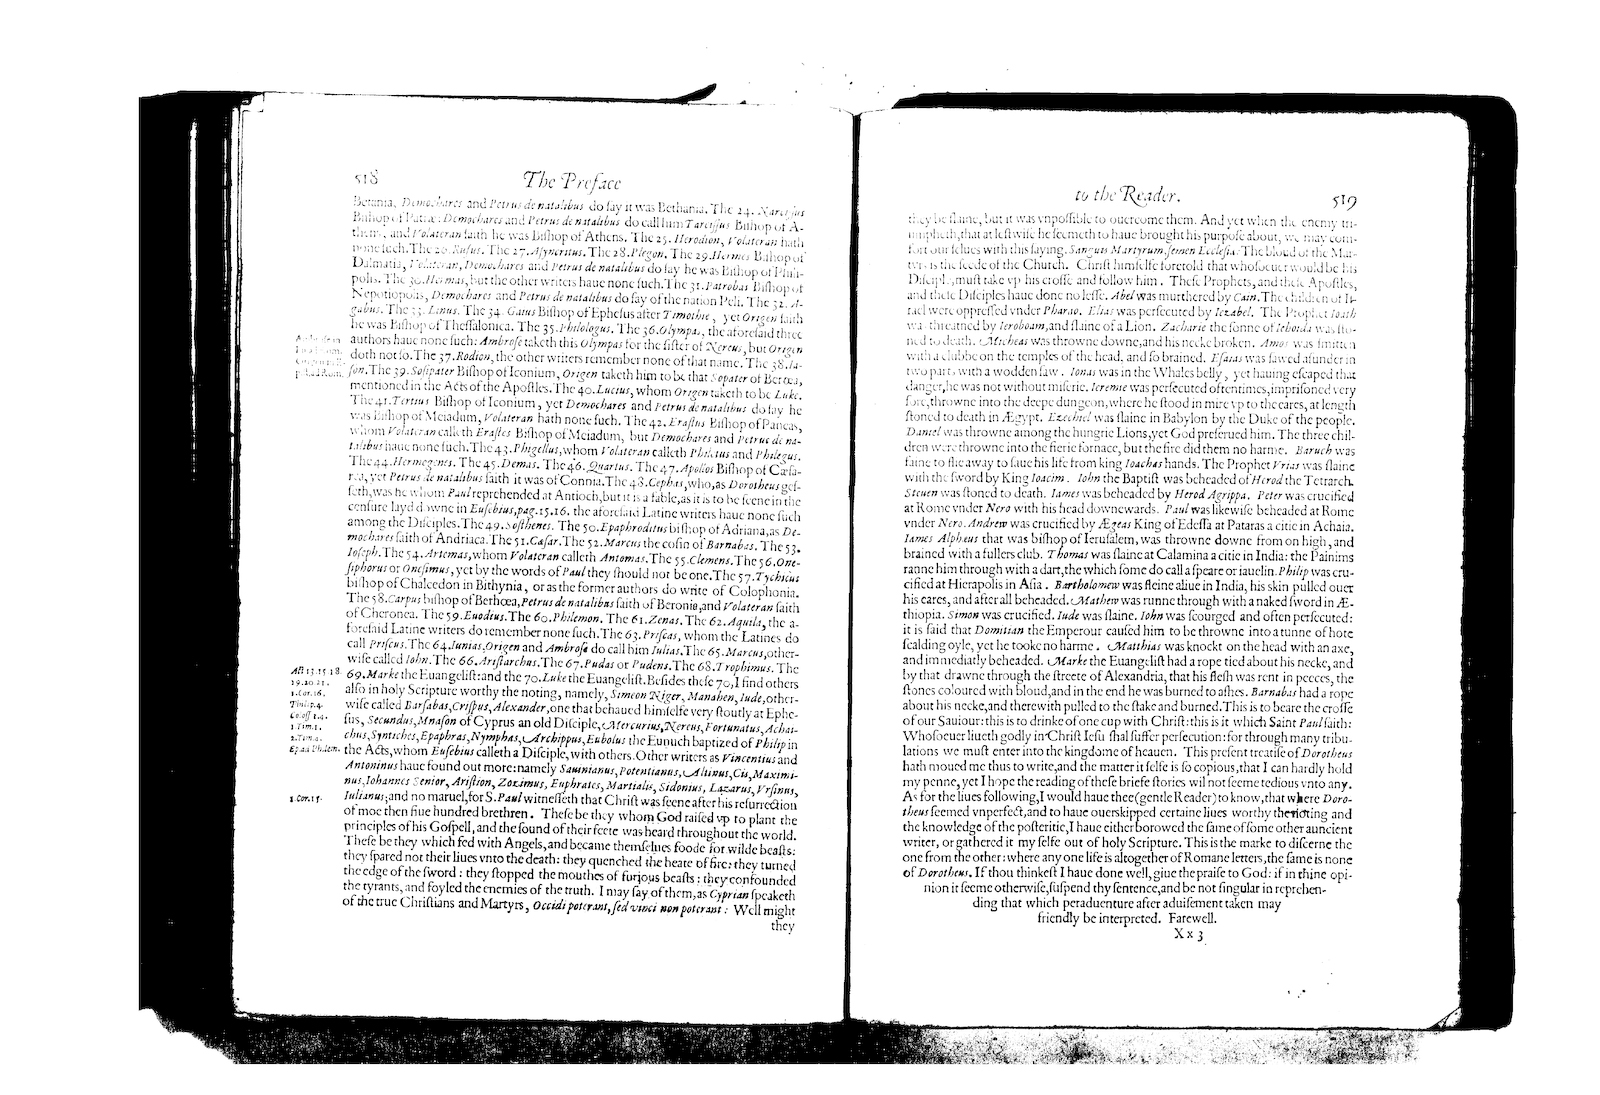 518
The Preface
Betania, Demochares and Petrus de natalibus do ſay it was Bethania. The 24. Narciſſus
Biſhop of Patræ: Demochares and Petrus de natalibus do call him Tarciſſus Biſhop of A-
thens, and Volateran ſaith he was Biſhop of Athens. The 25. Herodion, Volateran hath
none ſuch. The 26. Rufus. The 27. Aſyncritus. The 28. Plegon. The 29. Hermes Biſhop of
Dalmatia, Volateran, Demochares and Petrus de natalibus do ſay he was Biſhop of Phili-
polis. The 30. Hermas, but the other writers haue none ſuch. The 31. Patrobas Biſhop of
Nepotiopolis, Demochares and Petrus de natalibus do ſay of the nation Peli. The 32. A-
gabus. The 33. Linus. The 34. Gaius Biſhop of Epheſus after Timothie, yet Origen ſaith
he was Biſhop of Theſſalonica. The 35. Philologus. The 36. Olympas, the aforeſaid three
authors haue none ſuch: Ambroſe taketh this Olympas for the ſiſter of Nereus, but Origen
doth not ſo. The 37. Rodion, the other writers remember none of that name. The 38. Ia-
ſon. The 39. Soſipater Biſhop of Iconium, Origen taketh him to be that Sopater of Berœa,
mentioned in the Acts of the Apoſtles. The 40. Lucius, whom Origen taketh to be Luke.
The 41. Tertius Biſhop of Iconium, yet Demochares and Petrus de natalibus do ſay he
was Biſhop of Meiadum, Volateran hath none ſuch. The 42. Eraſtus Biſhop of Paneas,
whom Volateran calleth Eraſtes Biſhop of Meiadum, but Demochares and Petrus de na-
talibus haue none ſuch. The 43. Phigellus, whom Volateran calleth Philetus and Philegus.
The 44. Hermogenes. The 45. Demas. The 46. Quartus. The 47. Apollos Biſhop of Cæſa-
rea, yet Petrus de natalibus ſaith it was of Connia. The 48. Cephas, who, as Dorotheus geſ-
ſeth, was he whom Paul reprehended at Antioch, but it is a fable, as it is to be ſeene in the
cenſure layd downe in Euſebius, pag. 15.16. the aforeſaid Latine writers haue none ſuch
among the Diſciples. The 49. Soſthenes. The 50. Epaphroditus biſhop of Adriana, as De-
mochares ſaith of Andriaca. The 51. Cæſar. The 52. Marcus the coſin of Barnabas. The 53.
Ioſeph. The 54. Artemas, whom Volateran calleth Antomas. The 55. Clemens. The 56. One-
ſiphorus or Oneſimus, yet by the words of Paul they ſhould not be one. The 57. Tychicus
biſhop of Chalcedon in Bithynia, or as the former authors do write of Colophonia.
The 58. Carpus biſhop of Berhœa, Petrus de natalibus ſaith of Beronia, and Volateran ſaith
of Cheronea. The 59. Euodius. The 60. Philemon. The 61. Zenas. The 62. Aquila, the a-
foreſaid Latine writers do remember none ſuch. The 63. Priſcas, whom the Latines do
call Priſcus. The 64. Iunias, Origen and Ambroſe do call him Iulias. The 65. Marcus, other-
wiſe called Iohn. The 66. Ariſtarchus. The 67. Pudas or Pudens. The 68. Trophimus. The
69. Marke the Euangeliſt: and the 70. Luke the Euangeliſt. Beſides theſe 70, I find others
alſo in holy Scripture worthy the noting, namely, Simeon Niger, Manahen, Iude, other-
wiſe called Barſabas, Criſpus, Alexander, one that behaued himſelfe very ſtoutly at Ephe-
ſus, Secundus, Mnaſon of Cyprus an old Diſciple, Mercurius, Nereus, Fortunatus, Achai-
chus, Syntiches, Epaphras, Nymphas, Archippus, Eubolus the Eunuch baptized of Philip in
the Acts, whom Euſebius calleth a Diſciple, with others. Other writers as Vincentius and
Antoninus haue found out more: namely Sauinianus, Potentianus, Altinus, Cis, Maximi-
nus, Iohannes Senior, Ariſtion, Zozimus, Euphrates, Martialis, Sidonius, Lazarus, Vrſinus,
Iulianus; and no maruel, for S. Paul witneſſeth that Chriſt was ſeene after his reſurrection
of moe then fiue hundred brethren. Theſe be they whom God raiſed vp to plant the
principles of his Goſpell, and the ſound of their feete was heard throughout the world.
Theſe be they which fed with Angels, and became themſelues foode for wilde beaſts:
they ſpared not their liues vnto the death: they quenched the heate of fire: they turned
the edge of the ſword: they ſtopped the mouthes of furious beaſts: they confounded
the tyrants, and foyled the enemies of the truth. I may ſay of them, as Cyprian ſpeaketh
of the true Chriſtians and Martyrs, Occidi poterant, ſed vinci non poterant: Well might
they
Act 13.15.18.
19.20.21.
1.Cor.16.
Philip.4.
Coloſſ 1.4.
1.Tim.1.
2.Tim.2.
Ep.ad Philem.
1.Cor.15.
to the Reader.
519
they be ſlaine, but it was vnpoſſible to ouercome them. And yet when the enemy tri-
umpheth, that at leſtwiſe he ſeemeth to haue brought his purpoſe about, we may com-
fort our ſelues with this ſaying. Sanguis Martyrum, ſemen Eccleſiæ. The bloud of the Mar-
tyrs is the ſeede of the Church. Chriſt himſelfe foretold that whoſoeuer would be his
Diſciple, muſt take vp his croſſe and follow him. Theſe Prophets, and theſe Apoſtles,
and theſe Diſciples haue done no leſſe. Abel was murthered by Cain. The children of Iſ-
rael were oppreſſed vnder Pharao. Elias was perſecuted by Iezabel. The Prophet Ioath
was threatned by Ieroboam, and ſlaine of a Lion. Zacharie the ſonne of Iehoida was ſto-
ned to death. Micheas was throwne downe, and his necke broken. Amos was ſmitten
with a clubbe on the temples of the head, and ſo brained. Eſaias was ſawed aſunder in
two parts with a wodden ſaw. Ionas was in the Whales belly, yet hauing eſcaped that
danger, he was not without miſerie. Ieremie was perſecuted oftentimes, impriſoned very
ſore, throwne into the deepe dungeon, where he ſtood in mire vp to the eares, at length
ſtoned to death in Ægypt. Ezechiel was ſlaine in Babylon by the Duke of the people.
Daniel was throwne among the hungrie Lions, yet God preſerued him. The three chil-
dren were throwne into the fierie fornace, but the fire did them no harme. Baruch was
faine to flie away to ſaue his life from king Ioachas hands. The Prophet Vrias was ſlaine
with the ſword by King Ioacim. Iohn the Baptiſt was beheaded of Herod the Tetrarch.
Steuen was ſtoned to death. Iames was beheaded by Herod Agrippa. Peter was crucified
at Rome vnder Nero with his head downewards. Paul was likewiſe beheaded at Rome
vnder Nero. Andrew was crucified by Ægeas King of Edeſſa at Pataras a citie in Achaia.
Iames Alpheus that was biſhop of Ieruſalem, was throwne downe from on high, and
brained with a fullers club. Thomas was ſlaine at Calamina a citie in India: the Painims
ranne him through with a dart, the which ſome do call a ſpeare or iauelin. Philip was cru-
cified at Hierapolis in Aſia. Bartholomew was fleine aliue in India, his skin pulled ouer
his eares, and after all beheaded. Mathew was runne through with a naked ſword in Æ-
thiopia. Simon was crucified. Iude was ſlaine. Iohn was ſcourged and often perſecuted:
it is ſaid that Domitian the Emperour cauſed him to be throwne into a tunne of hote
ſcalding oyle, yet he tooke no harme. Matthias was knockt on the head with an axe,
and immediatly beheaded. Marke the Euangeliſt had a rope tied about his necke, and
by that drawne through the ſtreete of Alexandria, that his fleſh was rent in peeces, the
ſtones coloured with bloud, and in the end he was burned to aſhes. Barnabas had a rope
about his necke, and therewith pulled to the ſtake and burned. This is to beare the croſſe
of our Sauiour: this is to drinke of one cup with Chriſt: this is it which Saint Paul ſaith:
Whoſoeuer liueth godly in Chriſt Ieſu ſhal ſuffer perſecution: for through many tribu-
lations we muſt enter into the kingdome of heauen. This preſent treatiſe of Dorotheus
hath moued me thus to write, and the matter it ſelfe is ſo copious, that I can hardly hold
my penne, yet I hope the reading of theſe briefe ſtories wil not ſeeme tedious vnto any.
As for the liues following, I would haue thee (gentle Reader) to know, that where Doro-
theus ſeemed vnperfect, and to haue ouerskipped certaine liues worthy the noting and
the knowledge of the poſteritie, I haue either borowed the ſame of ſome other auncient
writer, or gathered it my ſelfe out of holy Scripture. This is the marke to diſcerne the
one from the other: where any one life is altogether of Romane letters, the ſame is none
of Dorotheus. If thou thinkeſt I haue done well, giue the praiſe to God: if in thine opi-
nion it ſeeme otherwiſe, ſuſpend thy ſentence, and be not ſingular in reprehen-
ding that which peraduenture after aduiſement taken may
friendly be interpreted. Farewell.
Xx 3